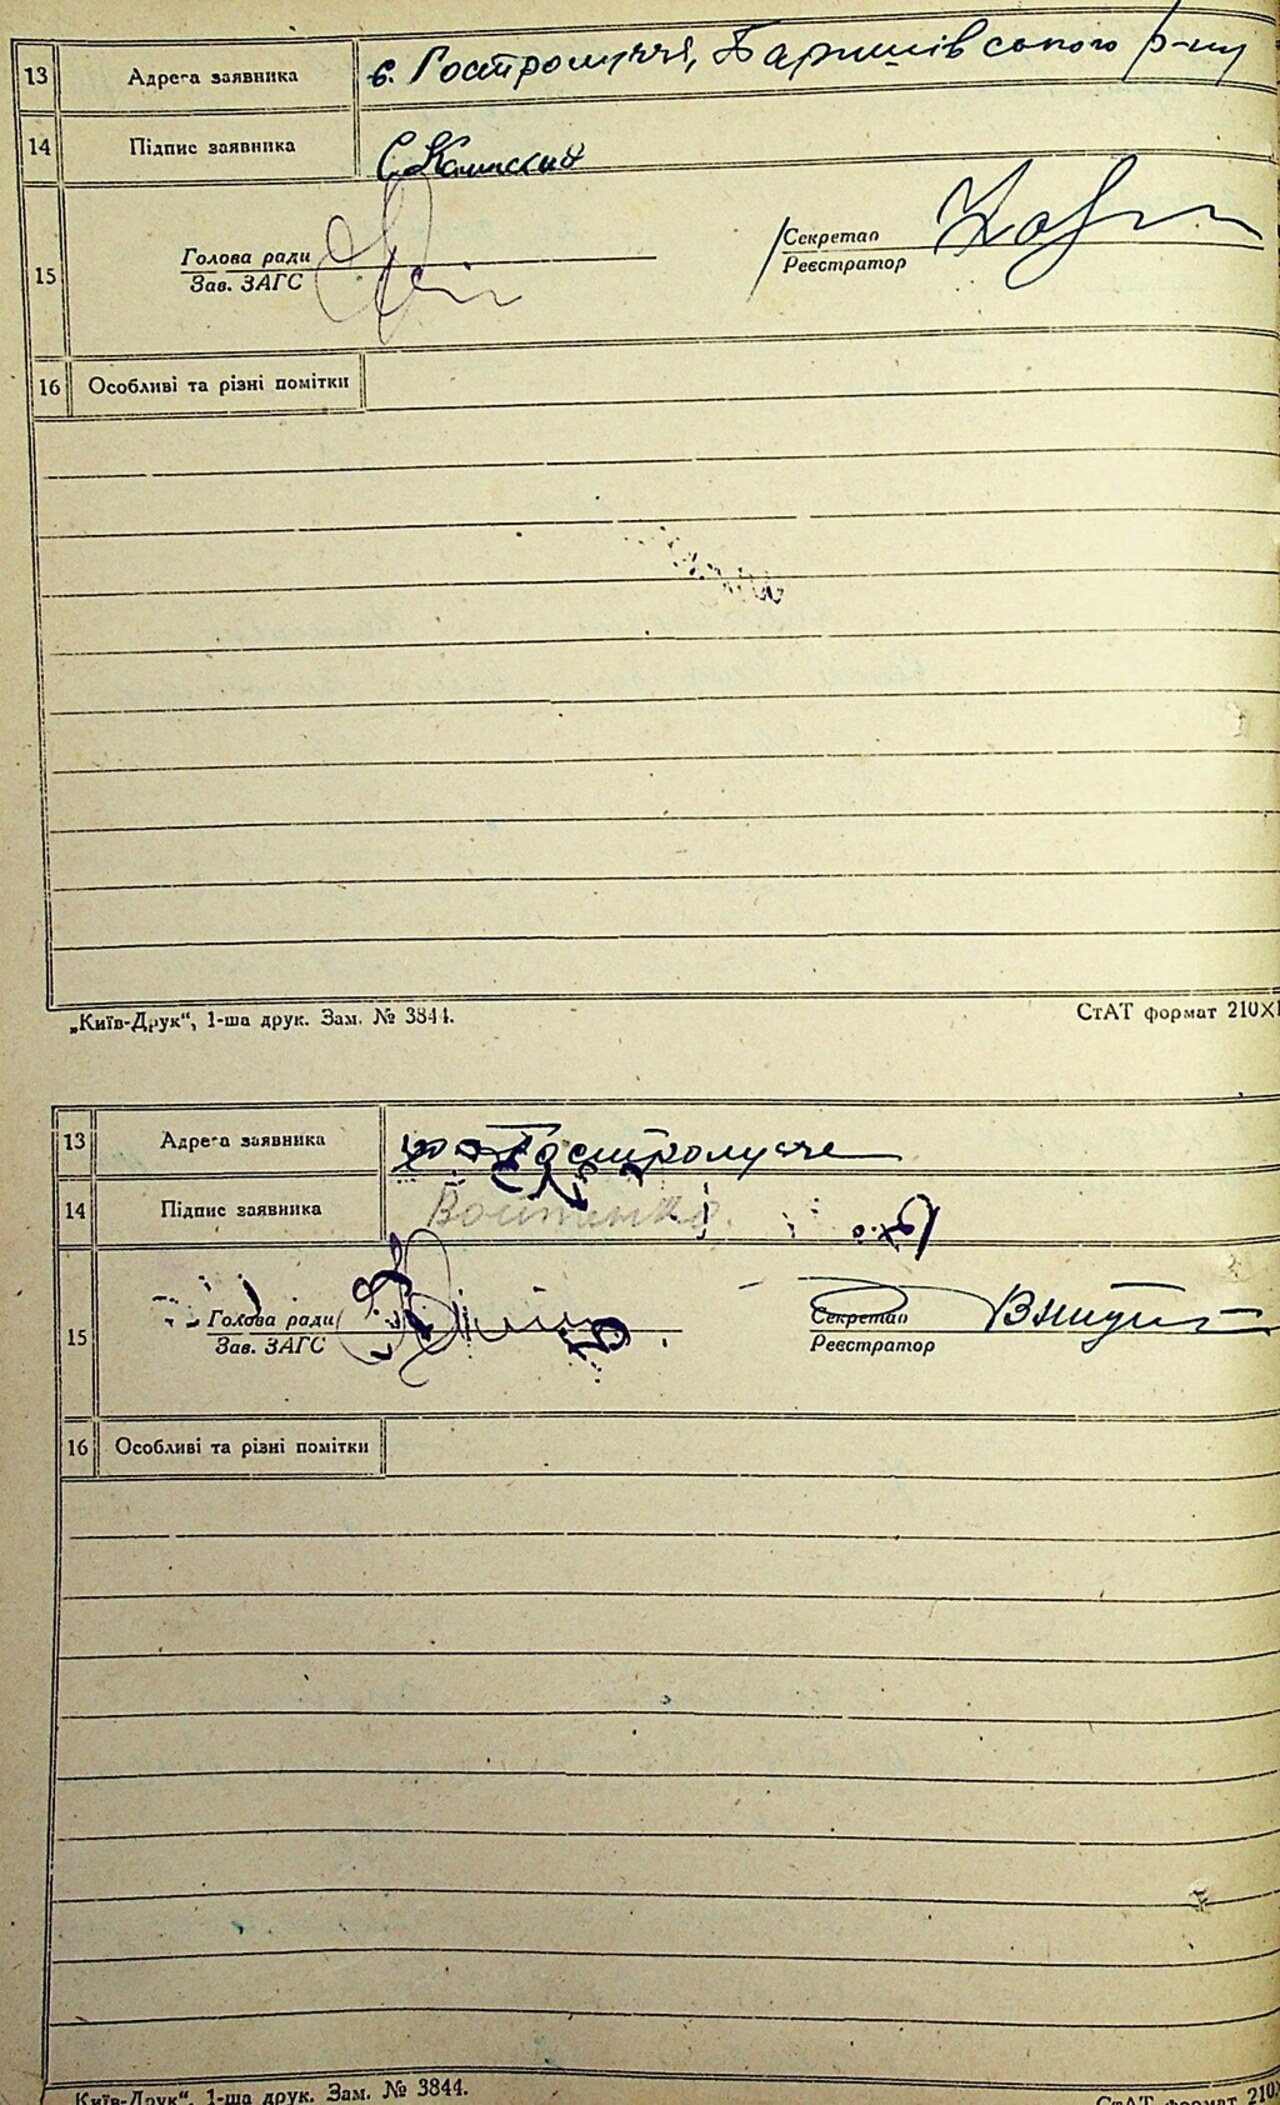 13 Адреса заявника с. Гостролуччя, Баришівського р-ну
14 Підпис заявника
15 Голова ради Секретар
Зав. ЗАГС Реєстратор
16 Особливі та різні помітки
„Київ-Друк“, 1-ша друк. Зам. № 3844. СтАТ формат 210×
13 Адреса заявника Гостролучче
14 Підпис заявника Войтенко.
15 Голова ради Секретар
Зав. ЗАГС Реєстратор
16 Особливі та різні помітки
Київ-Друк“, 1-ша друк. Зам. № 3844. СтАТ формат 210×